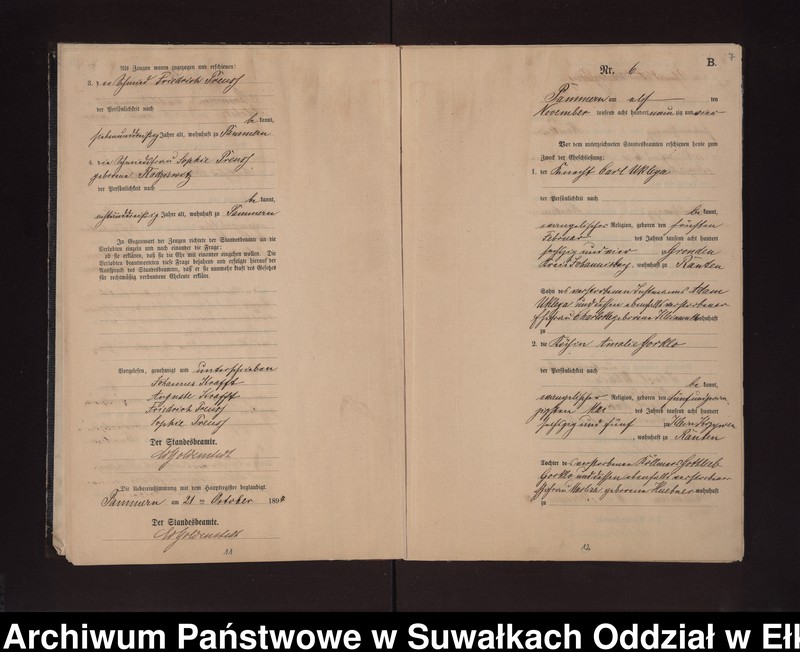 Als Zeugen waren zugezogen und erschienen:
3. der Schmied Friedrich
der Persönlichkeit nach
be kannt,
siebenunddreißig Jahre alt, wohnhaft zu
4. die Schmiedfrau Sophie
geborene
der Persönlichkeit nach
be kannt,
achtunddreißig Jahre alt, wohnhaft zu Pammern
In Gegenwart der Zeugen richtete der Standesbeamte an die
Verlobten einzeln und nach einander die Frage:
ob sie erklären, daß sie die Ehe mit einander eingehen wollen. Die
Verlobten beantworteten diese Frage bejahend und erfolgte hierauf der
Ausspruch des Standesbeamten, daß er sie nunmehr kraft des Gesetzes
für rechtmäßig verbundene Eheleute erkläre.
Vorgelesen, genehmigt und unterschrieben
Johannes Krafft
Auguste Krafft
Friedrich
Sophie
Der Standesbeamte.
Die Uebereinstimmung mit dem Hauptregister beglaubigt
Pammern am 21 ten October 1894
Der Standesbeamte.
11
7
B.
Nr. 6
Pammern am elf ten
November tausend acht hundert neunzig und vier
Vor dem unterzeichneten Standesbeamten erschienen heute zum
Zweck der Eheschließung:
1. der Knecht Carl Uklega
der Persönlichkeit nach
be kannt,
evangelischer Religion, geboren den fünften
Februar des Jahres tausend acht hundert
sechzig und vier Gronden
Kreis Johannisburg, wohnhaft zu Ranten
Sohn des verstorbenen Instmanns Adam
Uklega und dessen ebenfalls verstorbener
Ehefrau Charlotte geborene wohnhaft
zu
2. die Köchin Amalie Gorklo
der Persönlichkeit nach
be kannt,
evangelischer Religion, geboren den fünfundzwan-
zigsten Mai des Jahres tausend acht hundert
sechzig und fünf zu Klein
, wohnhaft zu Ranten
Tochter des verstorbenen Köllmers Gottlieb
Gorklo und dessen ebenfalls verstorbener
Ehefrau geborene wohnhaft
zu
12
Archiwum Państwowe w Suwałkach Oddział w Ełk